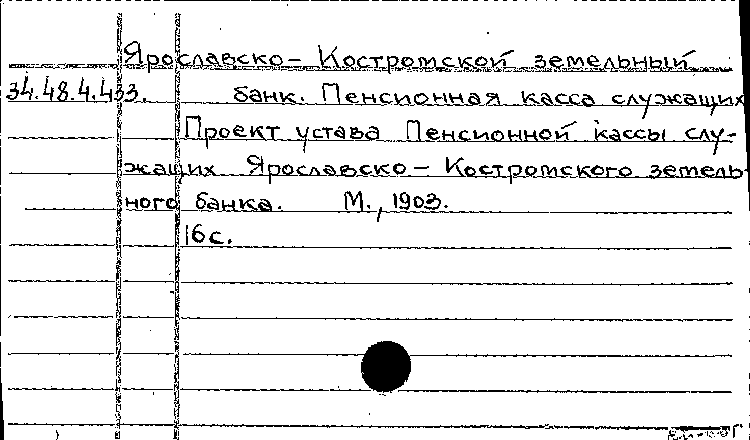 Ярославско-Костромской земельный
34.48.4.433. банк. Пенсионная касса служащих
Проект устава Пенсионной кассы слу-
жащих Ярославско-Костромского земель-
ного банка. М., 1903.
16 с.